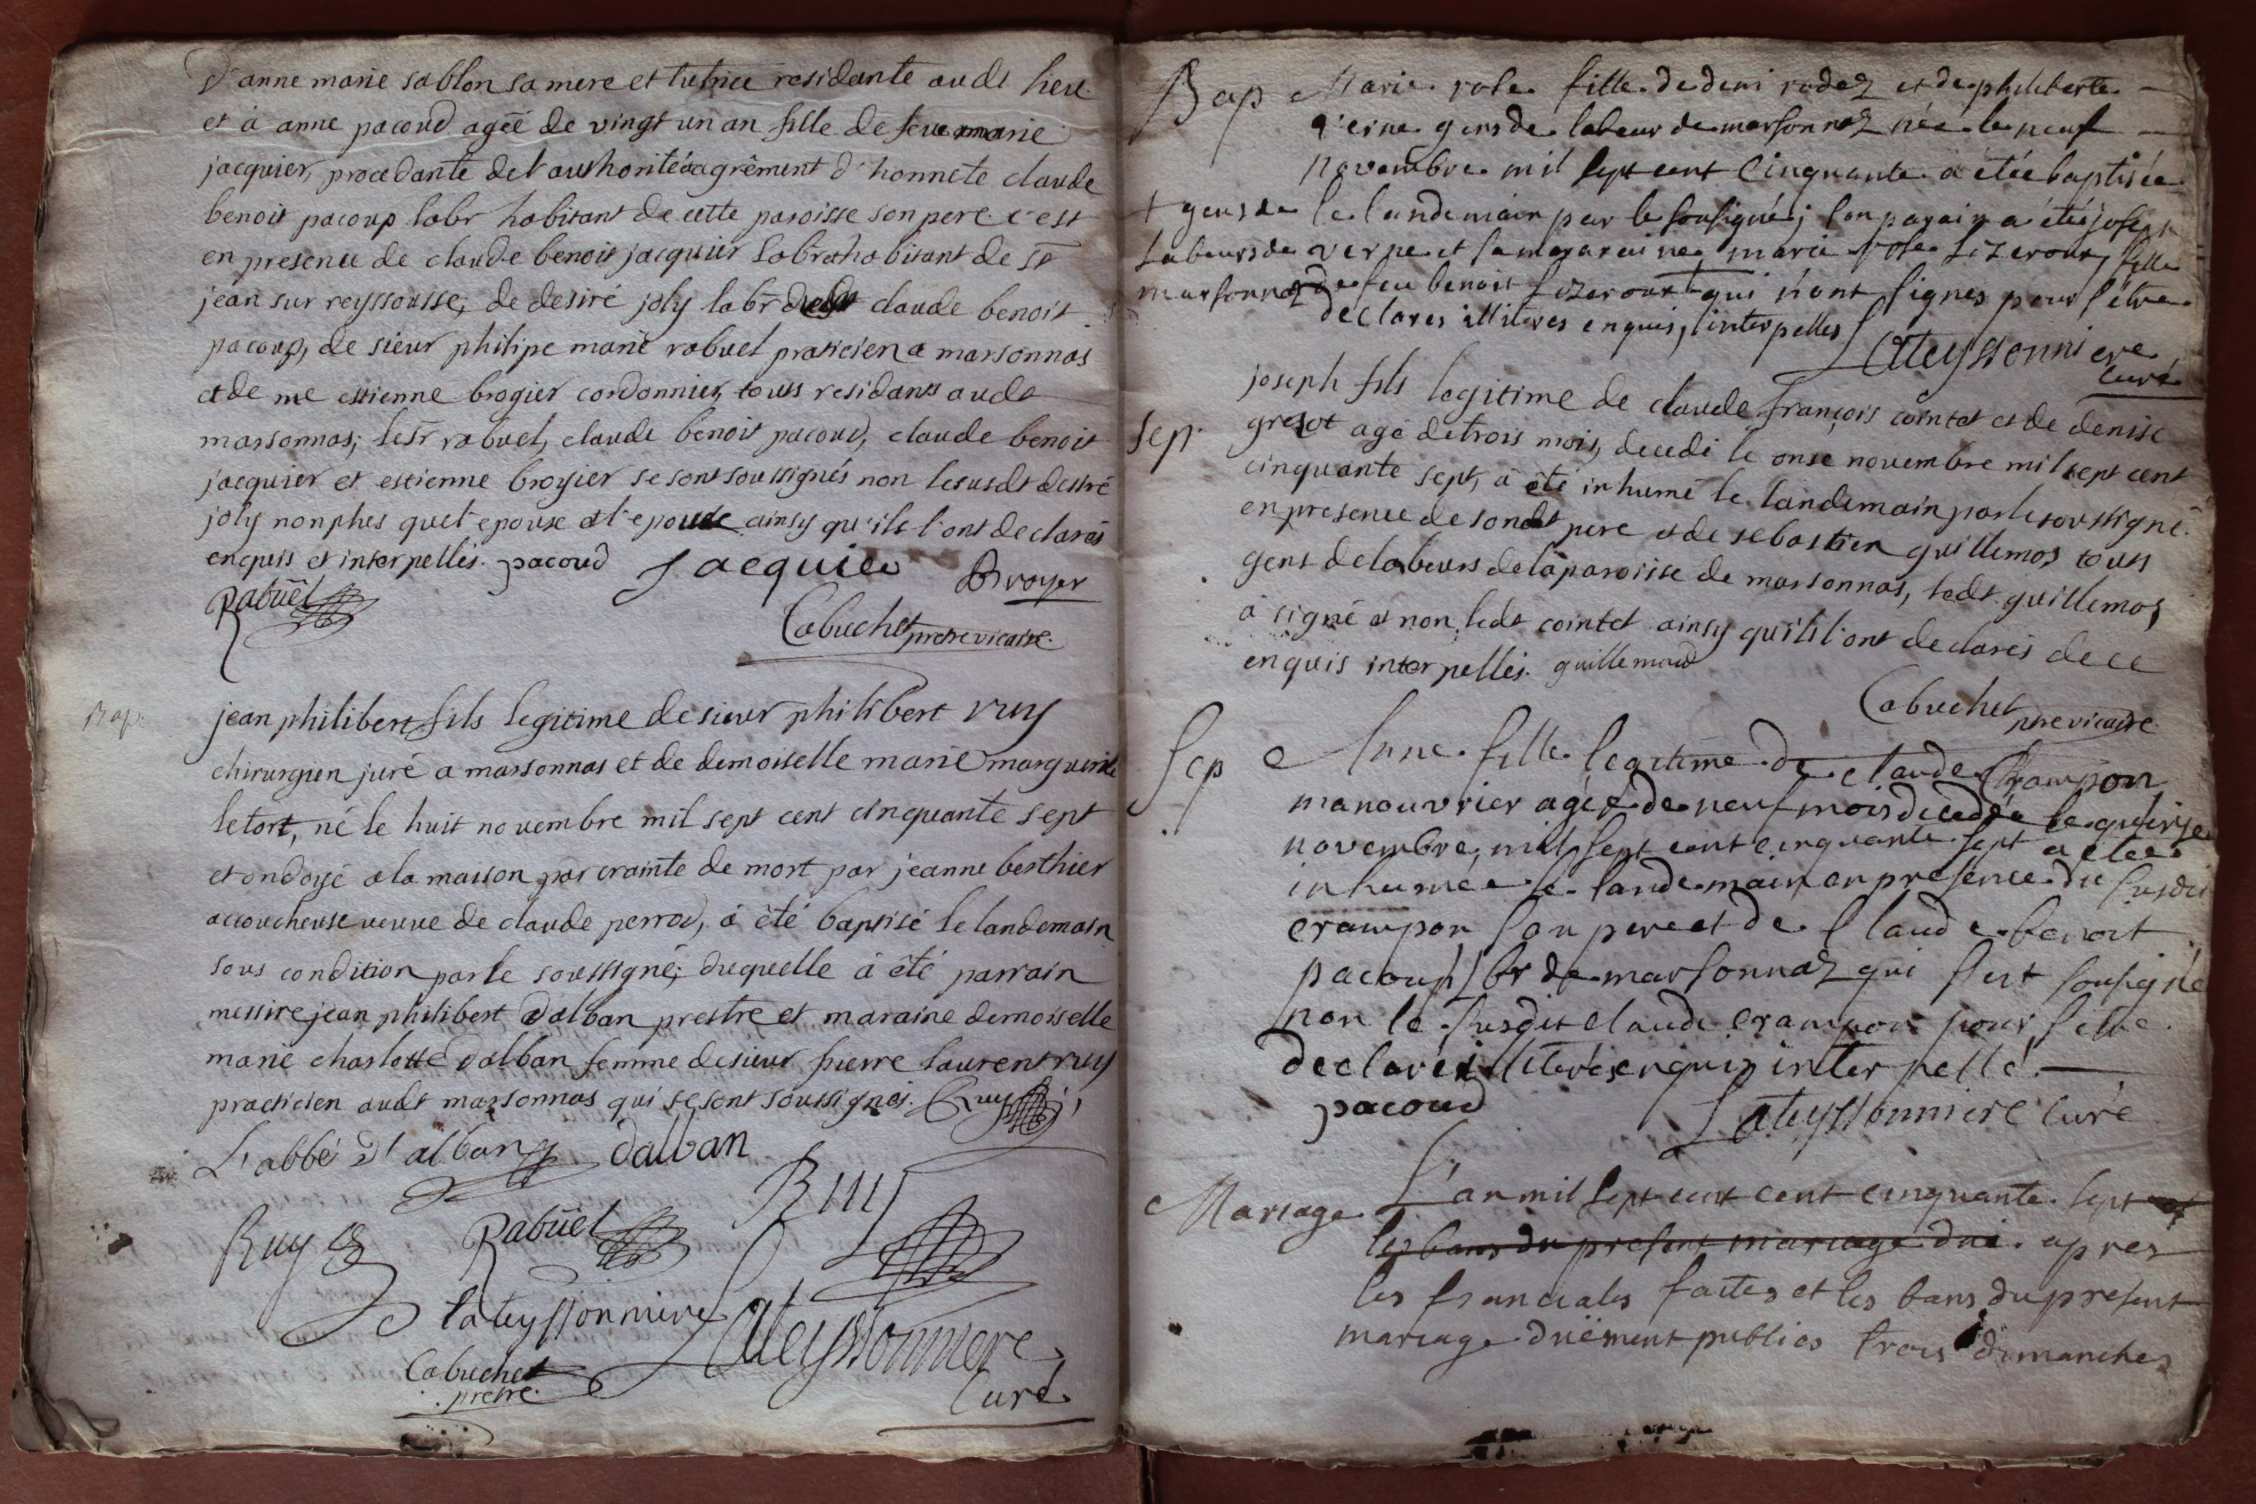 d'anne marie sablon sa mere et tutrice residante audt lieu
et à anne pacoud agéé de vingt un an fille de feue marie
jacquier, procedante de l'authorité & agrêment d'honnete claude
benoit pacoup labr habitant de cette paroisse son pere c'est
en presence de claude benoit jacquier labr & habitant de St
jean sur reyssousse, de desiré joly labr dudt claude benoit
pacoup, de sieur philipe marie rabuel praticien a marsonnas
et de me estienne brogier cordonnier, tous residants audt
marsonnas; le sr rabuel, claude benoit pacoud, claude benoit
jacquier et estienne broyier se sont soussignés non le susdt desiré
joly non plus que l'epoux et l'epouse ainsy qu'ils l'ont declarés
enquis et interpellés. pacoud Jacquier Broyer
Rabuël
Cabuchet pretre vicaire
Bap.
jean philibert fils legitime de sieur philibert ruy
chirurgien juré a marsonnas et de demoiselle marie marguerite
letort, né le huit novembre mil sept cent cinquante sept
et ondoyé a la maison par crainte de mort par jeanne berthier
accoucheuse veuve de claude perrod, à été baptisé le landemain
sous condition par le soussigné; duquelle à êté parrain
messire jean philibert dalban prestre et maraine demoiselle
marie charlotte dalban femme de sieur pierre laurent ruy
practicien audt marsonnas qui se sont soussignés. Ruy
L'abbé d'alban dalban
Ruy
Ruy Rabuël
lateyssonniere Lateyssonniere
Cabuchet
pretre. Curé
Bap Marie rote fille de deni rodez et de philiberte
verne gens de labeur de marsonnaz née le neuf
novembre mil sept cent cinquante a étée baptisée
le landemain par le sousigné; son parain a étée joseph
verne et sa maraine marie rote lizerour, fille
de feu benoit lizerour + qui n'ont signés pour s'être
declares illiteres enquis, interpelles
+ gens de
labeurs de
marsonnaz
Lateyssonniere
curé
Sep.
joseph fils legitime de claude françois cointet et de denise
grezot agé de trois mois, decedé le onse novembre mil sept cent
cinquante sept, à êté inhumé le landemain par le soussigné
en presence de sondt pere et de sebastien guillemos tous
gens de labeurs de la paroisse de marsonnas, ledt guillemos
à signé et non ledt cointet ainsy qu'ils l'ont declarés de ce
enquis interpellés. guillemaud
Cabuchet
ptre vicaire
Sep Anne fille legitime de claude Crampon
manouvrier agéé de neuf mois decedée le quinse
novembre, mil sept cent cinquante sept a étée
inhumée le landemain en presence du susdit
crampon son pere et de Claude benoit
pacoup lbr de marsonnaz qui s'est sousigné
non le susdit claude crampon pour s'être
declaré illiterés enquiz interpellé.
pacoud
Lateyssonniere Curé
Mariage L'an mil sept cent cent cinquante sept et
les bans du present mariage due apres
les fianciales faites et les bans du present
mariage duëment publiés trois dimanches